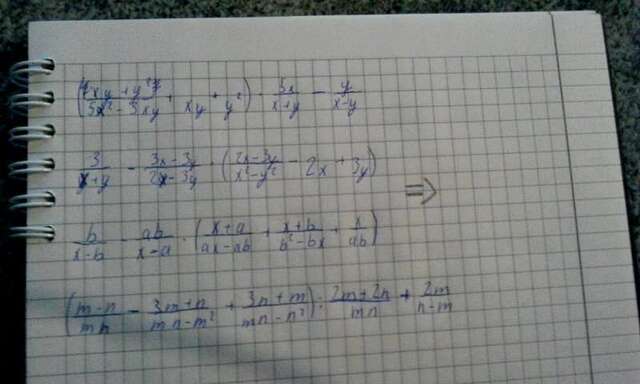 (4xy + y²)/(5x² - 5xy) + xy + y²) · 5x/(x+y) - y/(x-y)
3/(x+y) - (3x-3y)/(2x-3y) · ((2x-3y)/(x²-y²) - 2x + 3y)
⇒
b/(x-b) - ab/(x-a) · ((x+a)/(ax-ab) + (x+b)/(b²-bx) + x/(ab))
((m-n)/(mn) - (3m+n)/(mn-m²) + (3n+m)/(mn-n²)) : (2m+2n)/(mn) + 2m/(n-m)